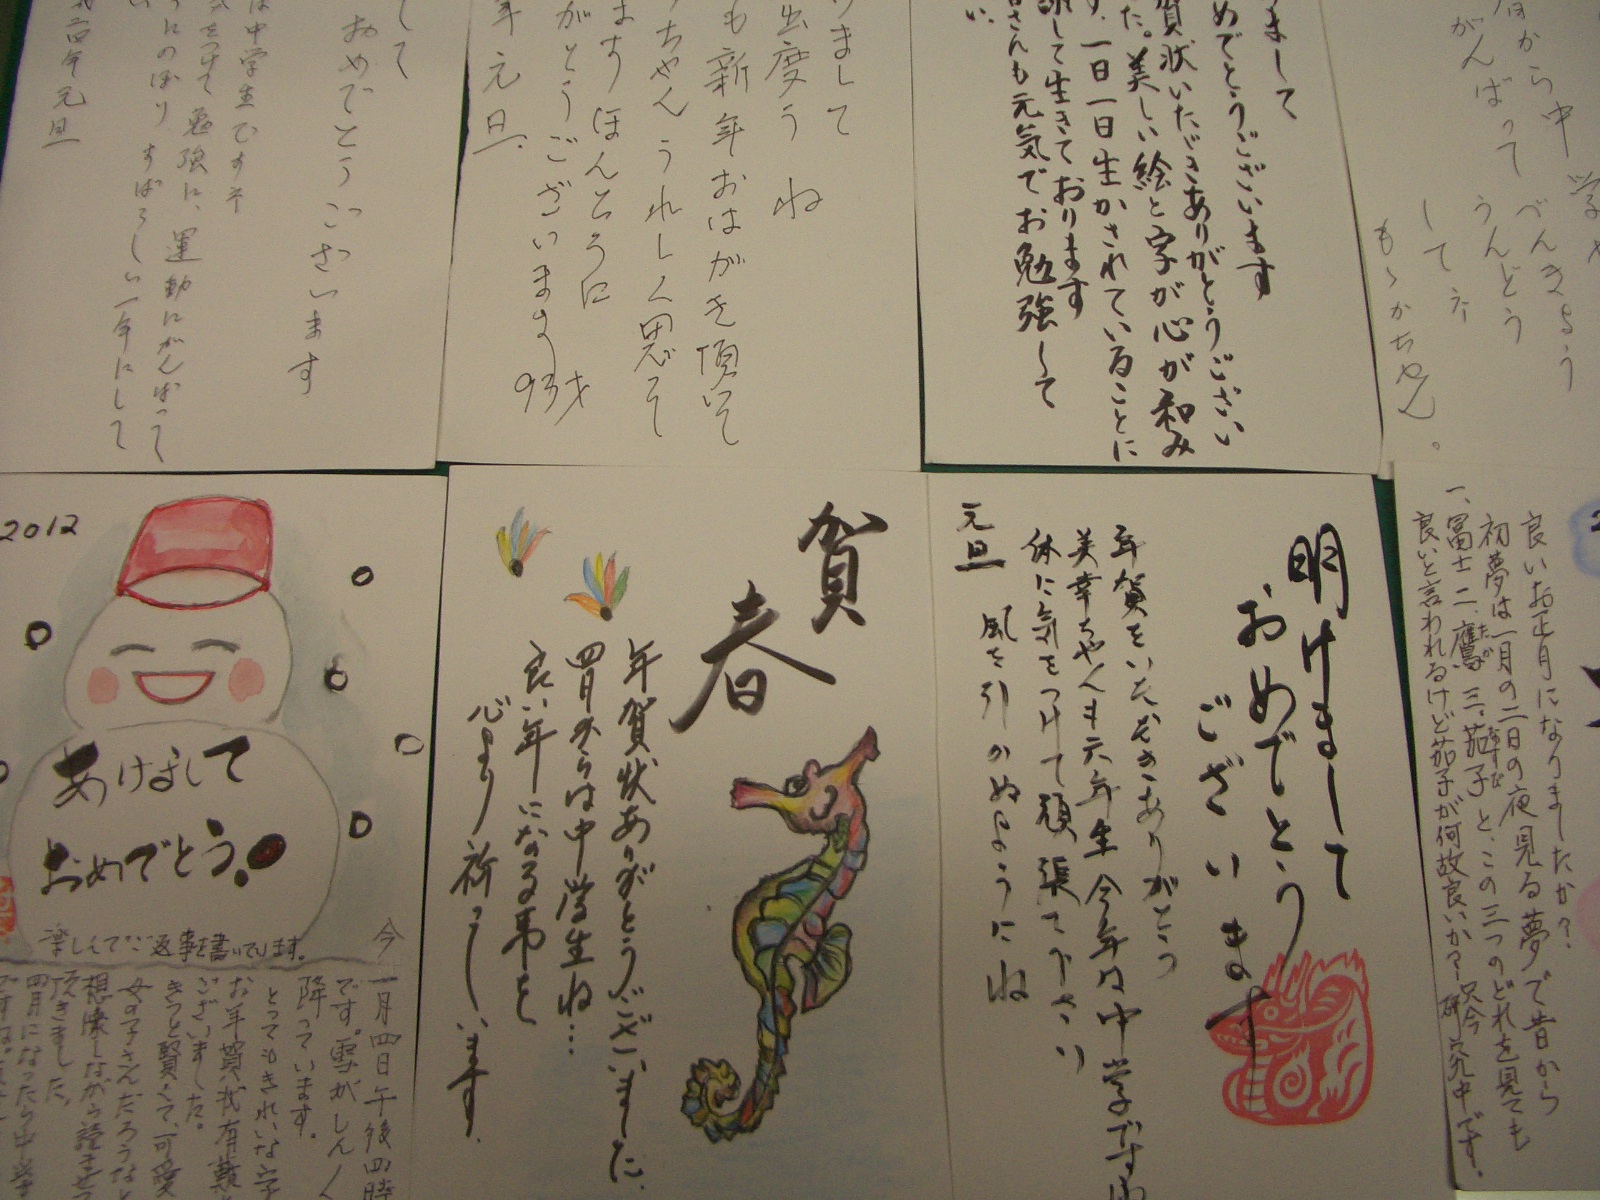 して
おめでとうございます
は中学生ですネ
勉強に、運動にがんばって
すばらしい一年にして
四年元旦
りまして
出度うね
も新年おはがき頂いて
ちゃんうれしく思って
ますほんとうに
がとうございます 93才
年元旦.
まして
めでとうございます
賀状いただきありがとうござい
た。美しい絵と字が心が和み
す.一日一日生かされていることに
謝して生きております
さんも元気でお勉強して
い.
月から中学
がんばって
べんきょう
うんどう
してネ
もゝかちゃん。
2012
あけまして
おめでとう。
楽しんでご返事を書いています。
今
一月四日午後四時
です。雪がしんく
降っています。
とってもきれいな字
お年賀状有難
ございました。
きっと賢くて、可愛
女の子さんだろうなと
想像しながら読ませて
頂きました。
四月になったら中学
賀春
年賀状ありがとうございました.
四月からは中学生ね…
良い年になる事を
心より祈っています.
明けまして
おめでとう
ございます
年賀をいただきありがとう
美幸ちゃんも六年生 今年は中学ですね
体に気をつけて頑張て下さい
風を引かぬようにね
元旦
良いお正月になりましたか？
初夢は一月の二日の夜見る夢で昔から
一、冨士 二、鷹 三、茄子と、この三つのどれを見ても
良いと言われるけど茄子が何故良いかー只今研究中です.